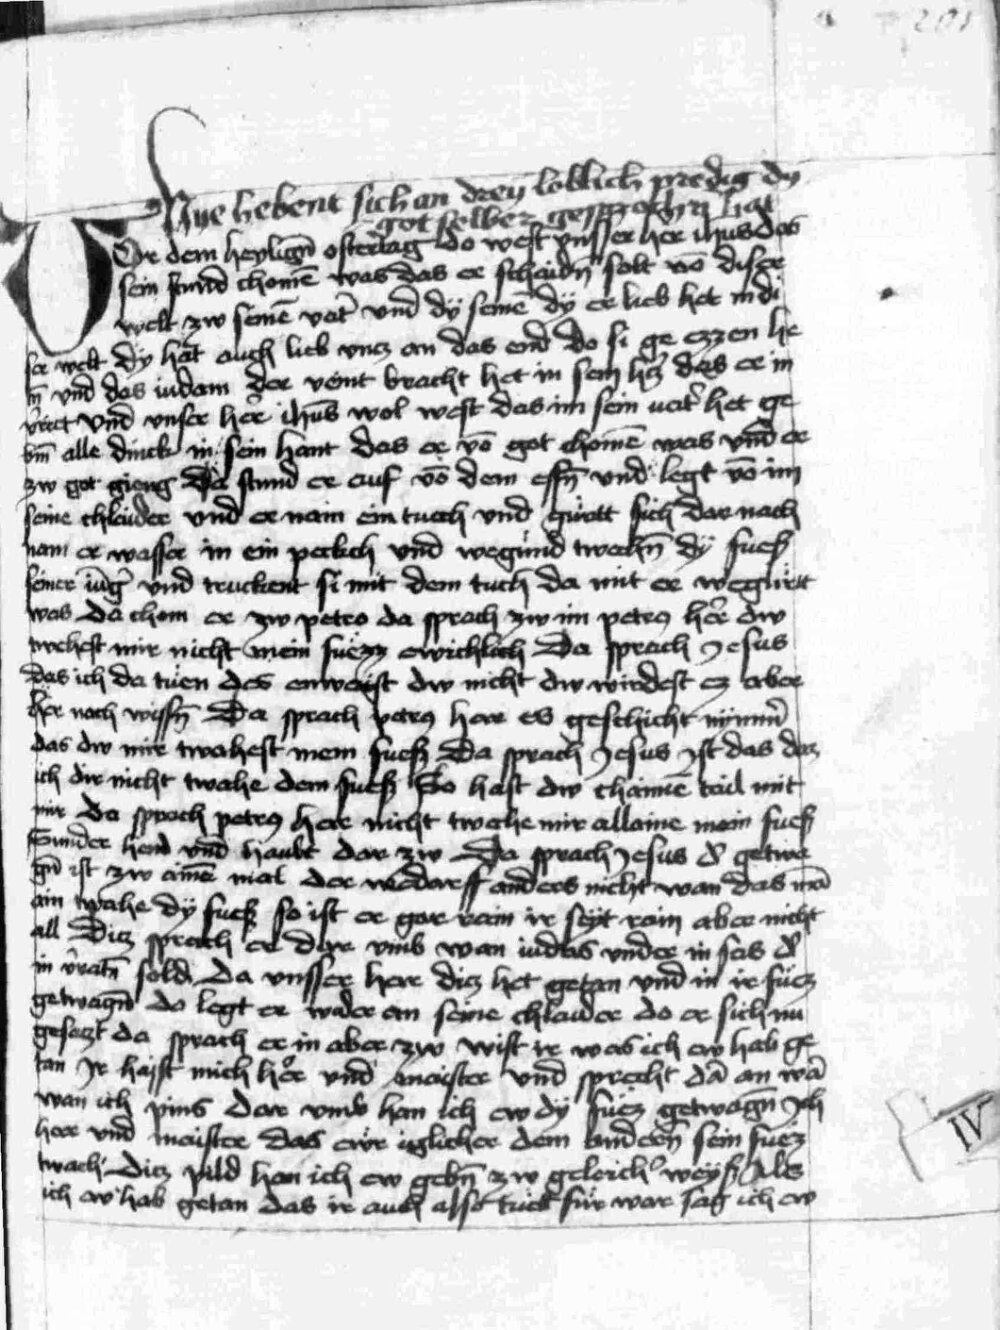 201
Hye hebent sich an drey loblich predig dy
got selber gesprochn hat
Vor dem heyligñ ostertag do west vnsser her ihus das
sein stund chomē was das er schaidñ solt vō diser
welt zw seinē vatˀ vnd dÿ seinē dÿ er lieb het in di
ser welt dÿ hat auch lieb vncz an das end do si ge ezzen he
tñ vnd das iudam der veint bracht het in sein hcz das er in
vˀriet vnd vnser hēr ihūs wol west das im sein vatˀ het ge
bñ alle dinck in sein hant das er vō got chomē was vnd er
zw got gieng Da stund er auf vō dem essñ vnd legt vō im
seine chlaider vnd er nam ein tuech vnd gürtt sich dar nach
nam er wasser in ein pekch vnd wegund twachñ dÿ fuess
seiner iūgˀ vnd truckent si mit dem tuch da mit er wegürtt
was da chom er zw petro da sprach zw im petrꝰ hēr dw
twehest mir nicht mein füezz ewichlich Da sprach Jesus
das ich da tuen des enwaist dw nicht dw wirdest ez aber
her nach wissñ Da sprach petrꝰ herr es geschicht nÿmmˀ
das dw mir twahest mein fuess Da sprach Jesus Jst das daz
ich dir nicht twahe dein fuess So hast dw chainē tail mit
mir Da sprach petrꝰ herr nicht twahe mir allaine mein fuess
Sunder hend vnd haubt dar zw Da sprach Jesus dˀ getwa
gñ ist zw ainē mal der wedarff anders nicht wan das mā
ain twahe dÿ fuess so ist er gar rain ir seyt rain aber nicht
all Dicz sprach er dar vmb wan iudas vnder in sas dˀ
in vˀratñ sold Da vnsser herr dicz het getan vnd in ir füez
getwagñ do legt er wider an seine chlaider do er sich nu
gesaczt da sprach er in aber zw wist ir was ich ew hab ge
tan Jr haist mich herr vnd maister vnd sprecht dā an wā
wan ich pins dar vmb han ich ew dÿ füez getwagñ Jch
herr vnd maister das ewr iglicher dem anderñ sein fuez
twach Dicz pild han ich ew gebñ zw geleichˀ weyss Als
ich ew hab getan das ir auch also tuet für war sag ich ew
IV